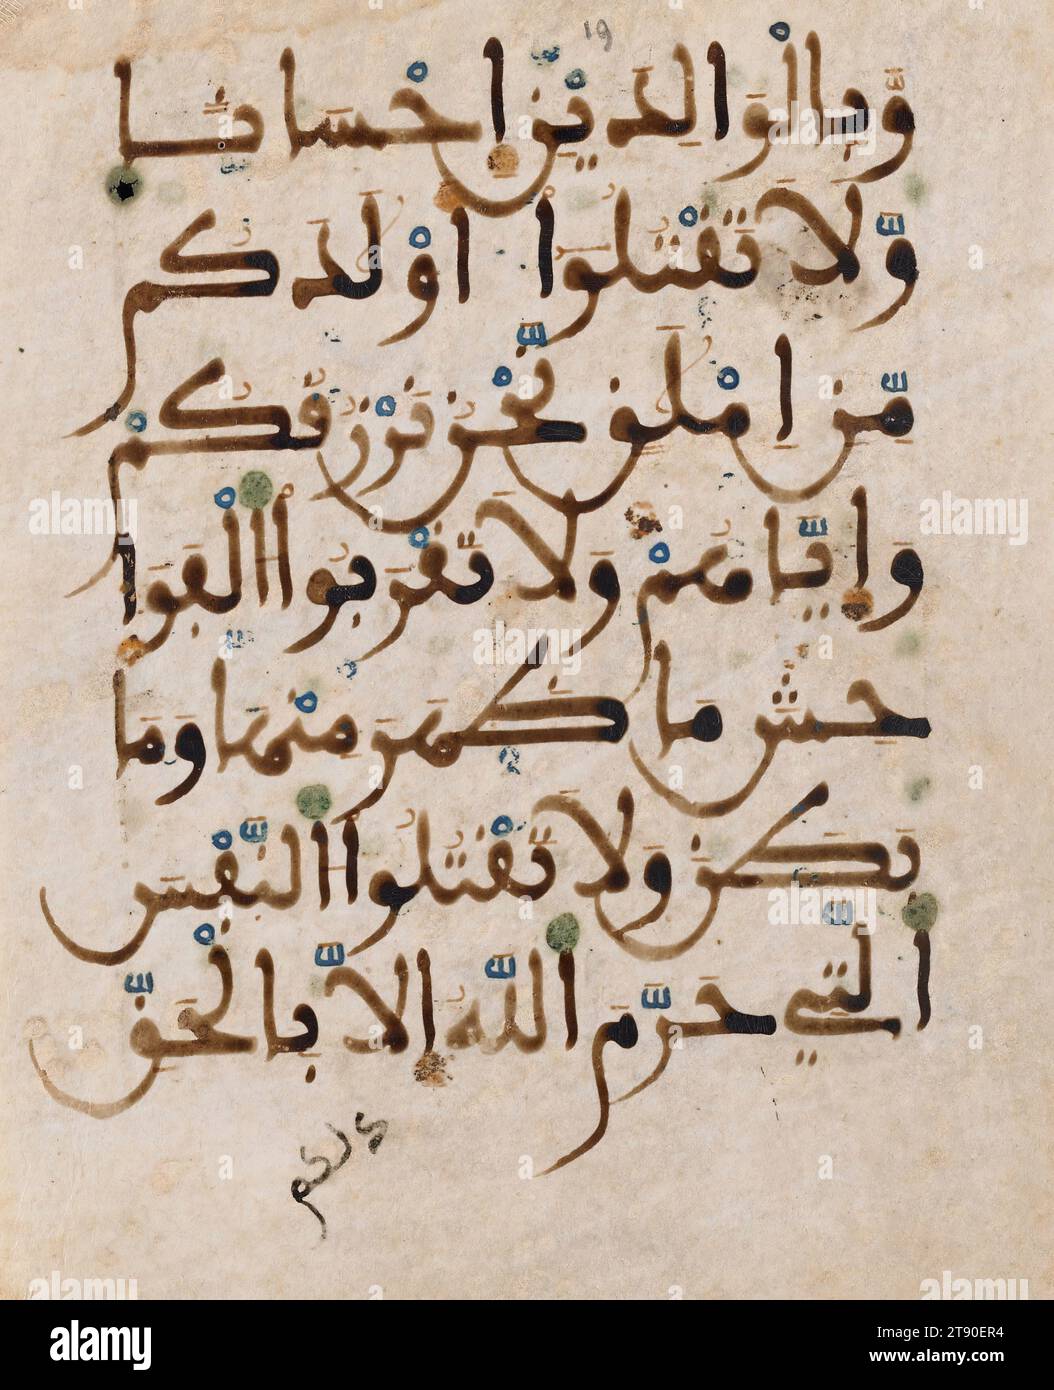 19
وَبِالْوَالِدَيْنِ إِحْسَانًا
وَلَا تَقْتُلُوا أَوْلَدَكُم
مِّنِ امْلَقٍ نَّحْنُ نَرْزُقُكُمْ
وَإِيَّاهُمْ وَلَا تَقْرَبُوا الْفَوَا
حِشَ مَا ظَهَرَ مِنْهَا وَمَا
بَطَنَ وَلَا تَقْتُلُوا النَّفْسَ
الَّتِي حَرَّمَ اللَّهُ إِلَّا بِالْحَقِّ
ذلكم
alamy
Image ID: 2T90ER4
www.alamy.com